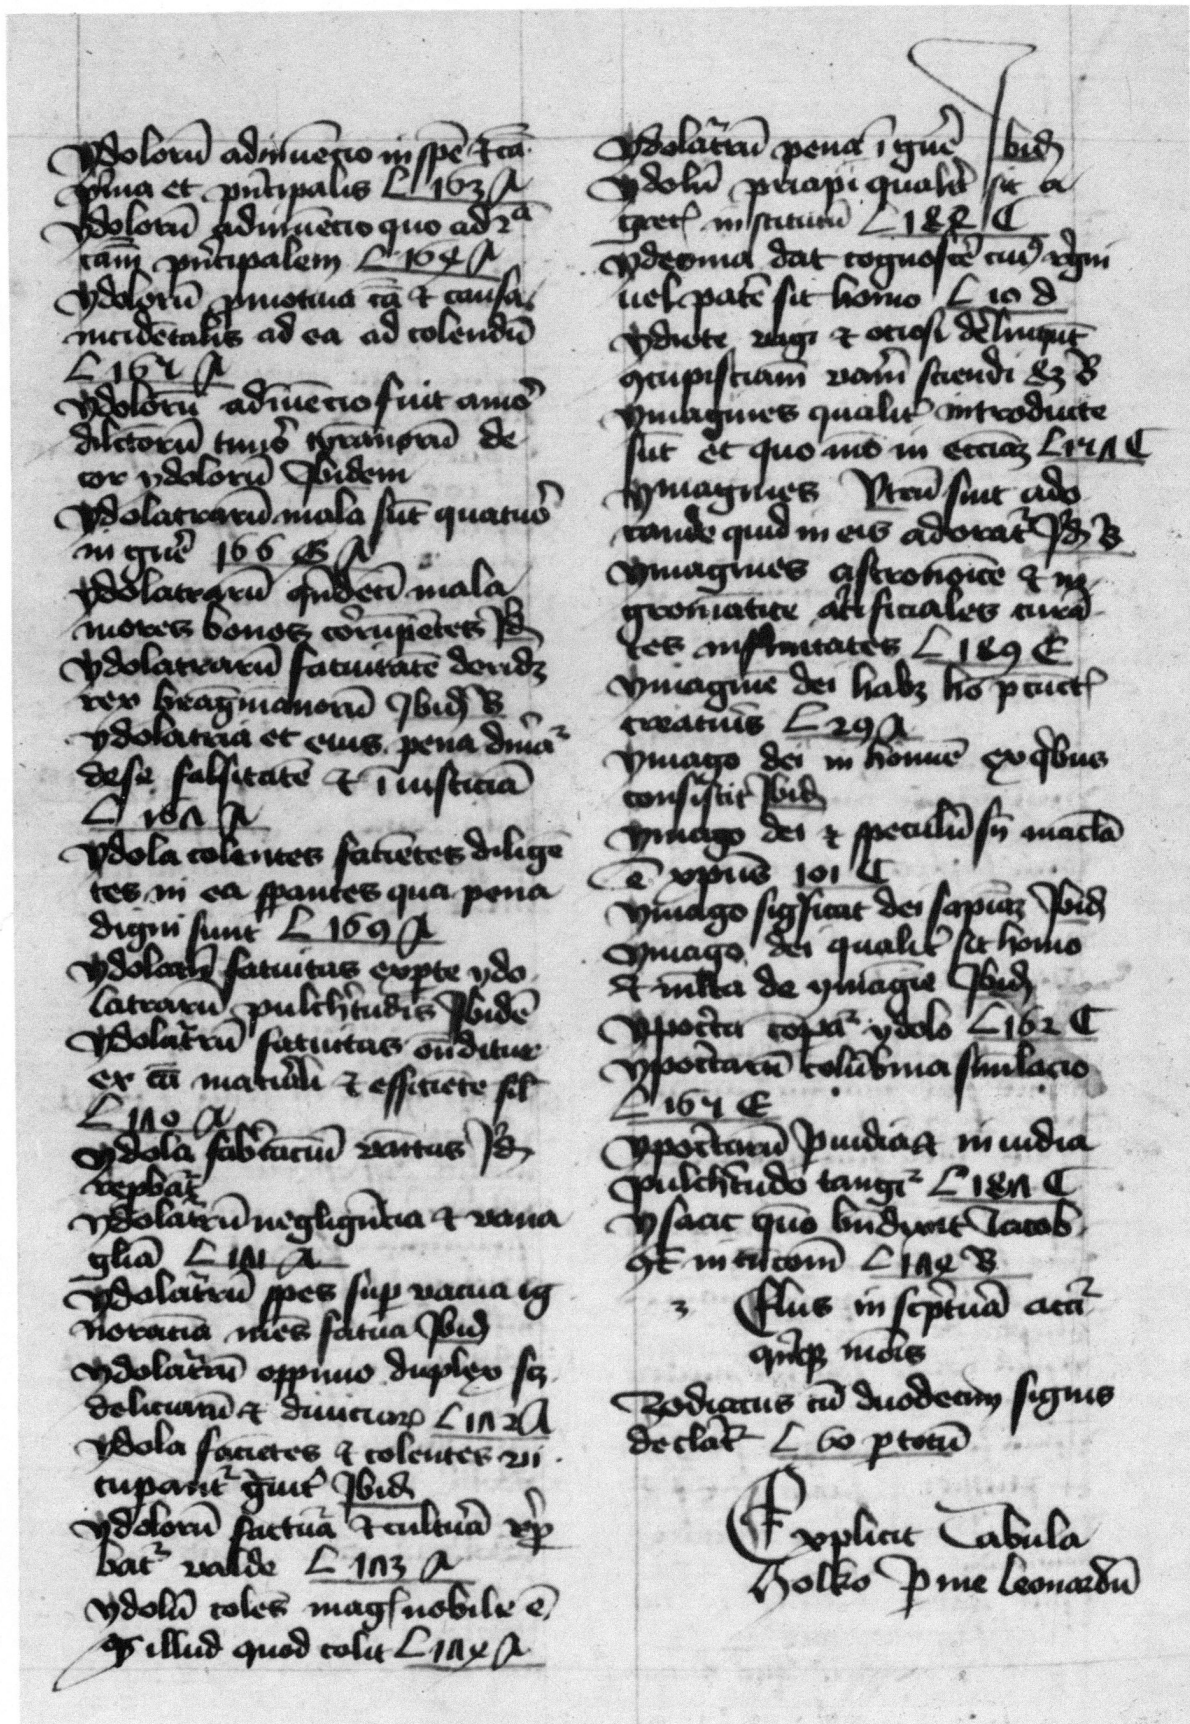 ydolorū adinuēcio in spē & cā
pͥma et pͥncipalis L 163 A
ydolorū adinuēcio quo ad 2ā
cām pͥncipalem L 164 A
ydolorū pmotiua cā & causa
incidētalis ad ea ad colendū
L 167 A
ydolorū adinuēcio fuit amoͬ
dilectorū timoͬ tirānorū de
cor ydolorū Ibidem
ydolatrarū mala sūt quatuoͬ
in gn̄e 166 A
ydolatrarū qͥndecī mala
mores bonos corrūpētes Id
ydolatrarū fatuitatē deridꝫ
rex bragmanorū Ibidꝭ B
ydolatria et eius pena
de se falsitatē & īiusticiā
L 168 A
ydola colentes faciētes diligē
tes in ea spantes qua pena
digni sunt L 169 A
ydolatrū fatuitas ex pte ydo
latrarū pulchͥtudīs Ibidē
ydolatrū fatuitas on̄ditur
ex cā mat̄iali & efficiēte sil
L 170 A
ydola fabͥcaciū vāitas Id
repbatͬ
ydolatrū negligēcia & vana
gl̄ia L 171 A
ydolatrū spes sup vacua ig
norācia mēs fatua Ibid
ydolatrū oppinio duplex scꝫ
deliciarū & diuiciarꝝ L 172 A
ydola faciētes & colentes vi
tupantͬ gͣuitͬ Ibid
ydolorū factura & cultura rep
batͬ valde L 173 A
ydolū colēs magꝭ nobile ē
qͣ illud quod colit L 174 A
ydolatrū pena ī gn̄e Ibid
ydolū priapi qualitͬ sit a
grecꝭ institutū L 182 C
ydeoma dat cognoscē cuiꝰ regni
uel patͥe sit homo L 10 d
ydiote vagi & ociosi
ꝯcupisciam vanā sciendi 83 B
ymagines qualitͬ introducte
sūt et quo mō in ecciaꝫ L 171 C
ymagines Vtrū sint ado
rande quid in eis adoratͬ Id B
ymagines astronoīce & ni
gromātice artificiales curā
tes infirmitates L 189 E
ymaginē dei habꝫ hō p cunctꝭ
creaturis L 29 A
ymago dei in homine ex qͥbus
consistit Ibid
ymago dei & speculū sn̄ macla
ē xpūs 101 C
ymago significat dei sapiam Ibid
ymago dei qualitͬ sit homo
& mlta de ymagīe Ibid
ypocͥta cōpatͬ ydolo L 162 C
ypocͥtarū colūbina simulacio
L 167 E
ypocͥtarū inuidia
pulchͥtudo tangitͬ L 187 C
ysaac quō bn̄dixit Iacob
L 174 B
in scͥptura
mōis
Zodiacus cū duodecim signis
declaratͬ L 60 p totū
Explicit Tabula
Holko P me leonardū